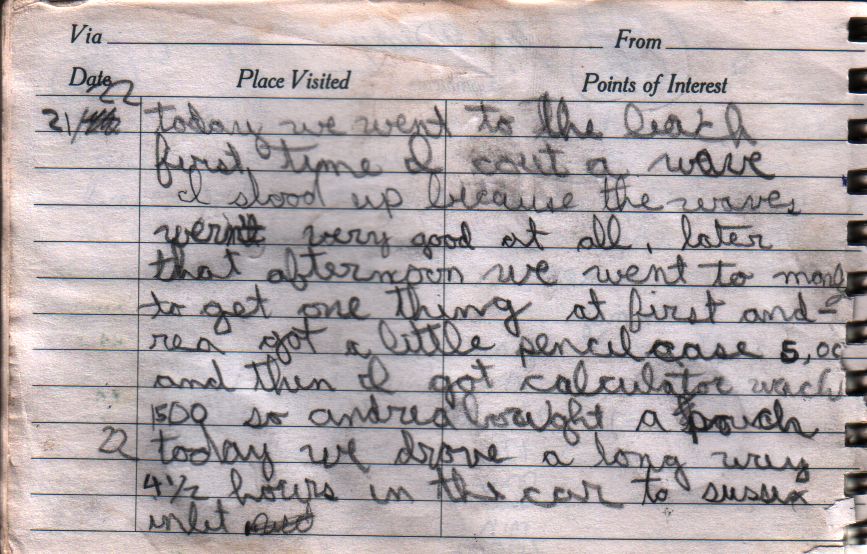 Via From
Date Place Visited Points of Interest
22
21/ today we went to the beach
first time I cout a wave
I stood up because the waves
wernt very good at all, later
that afternoon we went to manly
to get one thing at first and-
rea got a little pencil case 5,00
and then I got calculator wach
1500 so andrea bought a pouch
22 today we drove a long way
4 1/2 hours in the car to sussex
inlet